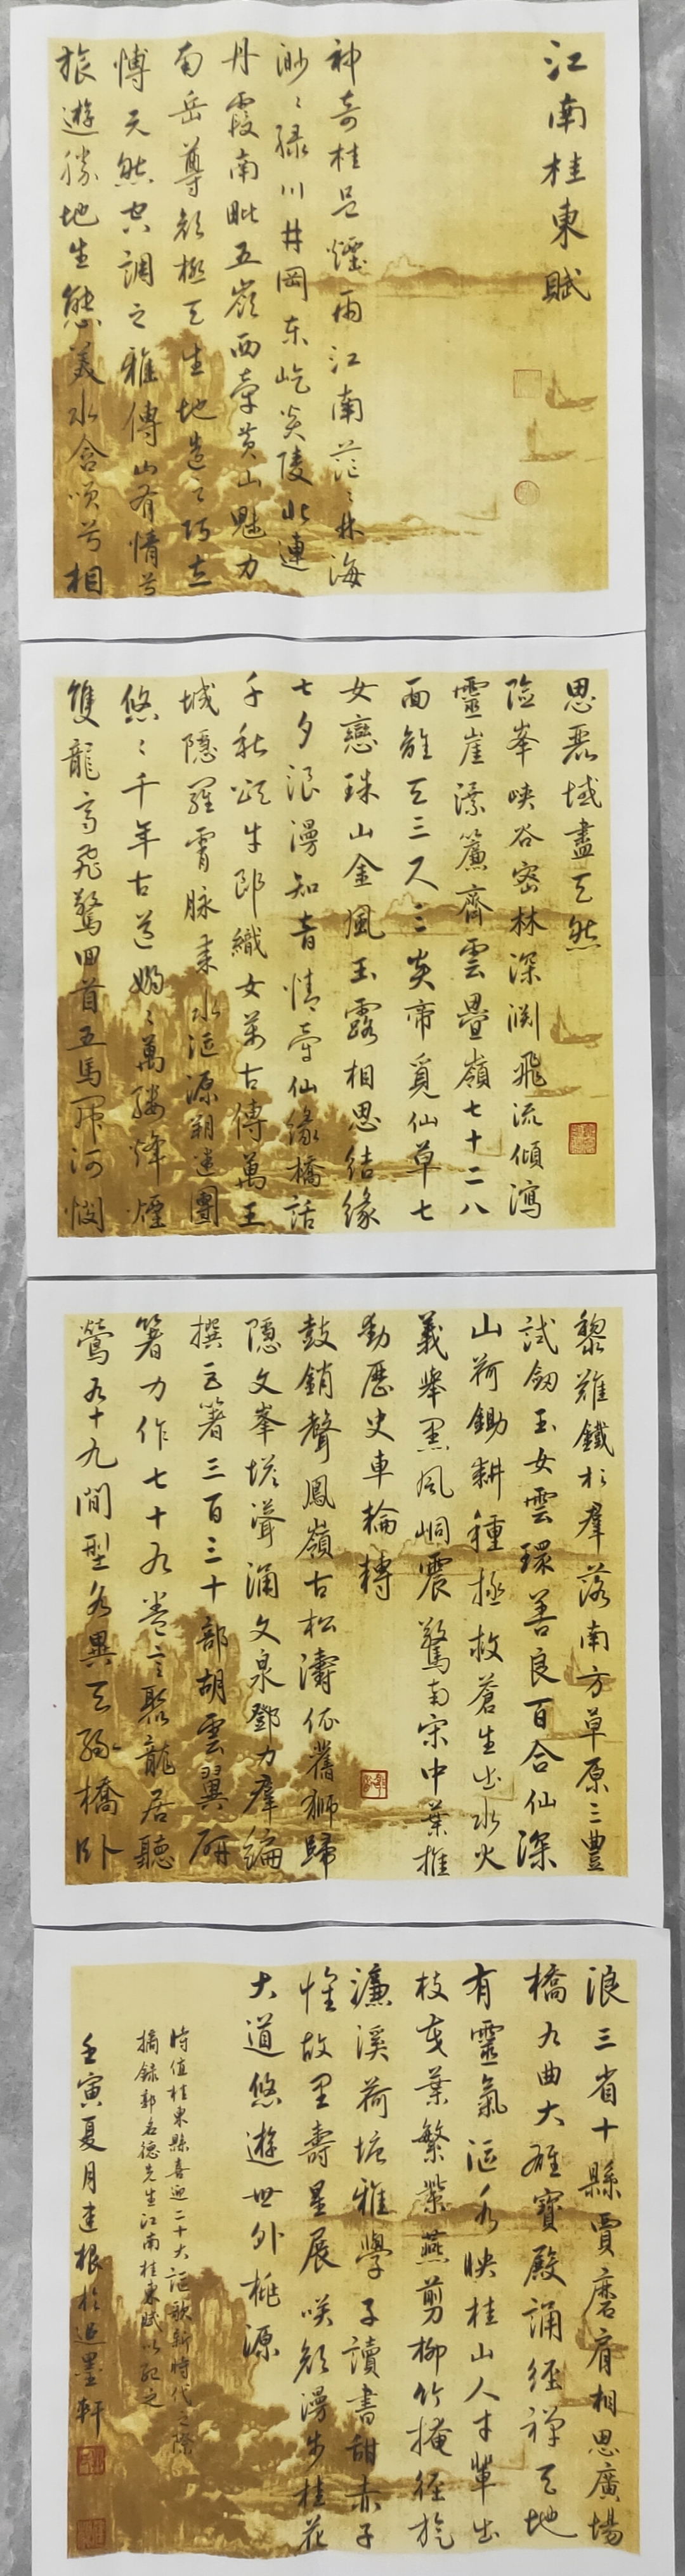 江南桂東賦
神奇桂邑煙雨江南茫茫林海
渺渺綠川井岡東屹炎陵北連
丹霞南毗五嶺西牽黄山魅力
南岳尊顔極天生地造之巧立
博天然空調之雅傳山有情兮
旅遊勝地生態美水含唄兮相
思磊域盡天然
險峯峽谷密林深澗飛流傾瀉
靈崖瀑簾齊雲疊嶺七十二八
面離天三尺三炎帝覓仙草七
女戀珠山金風玉露相思結緣
七夕浪漫知音情牽仙緣橋話
千秋頌牛郎織女萬古傳萬王
城隱羅霄脉耒水漚源朔連團
悠悠千年古道嫋嫋萬縷烽煙
雙龍高飛驚回首五馬歸河憫
黎難鐵杉羣落南方草原三豐
試劒玉女雲環善良百合仙深
山荷鋤耕種拯救蒼生出水火
義舉黑風峒震驚南宋中葉推
動歷史車輪轉
鼓銷聲鳳嶺古松濤依舊獅歸
隱文峯塔聳涌文泉鄧力羣編
撰巨著三百三十部胡雲翼研
著力作七十九卷之聚龍居聽
鶯九十九間型各異天緣橋卧
浪三省十縣賈磨肩相思廣場
橋九曲大雄寳殿誦經禪天地
有靈氣漚水映桂山人才輩出
枝茂葉繁紫燕剪柳竹掩徑旋
濂溪荷塘雅學子讀書甜赤子
惟故里壽星展咲顔漫步桂花
大道悠遊世外桃源
時值桂東縣喜迎二十大謳歌新時代之際
摘録郭名德先生江南桂東賦以記之
壬寅夏月建根於逅墨軒